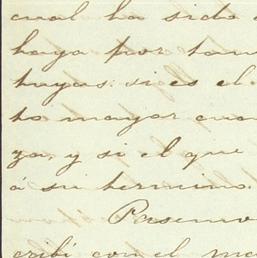 cual ha sido
haya por tan
tuyas: si es el
to mayor cua
za, y si el que
á su termino.
Pasemo
cribí con el ma